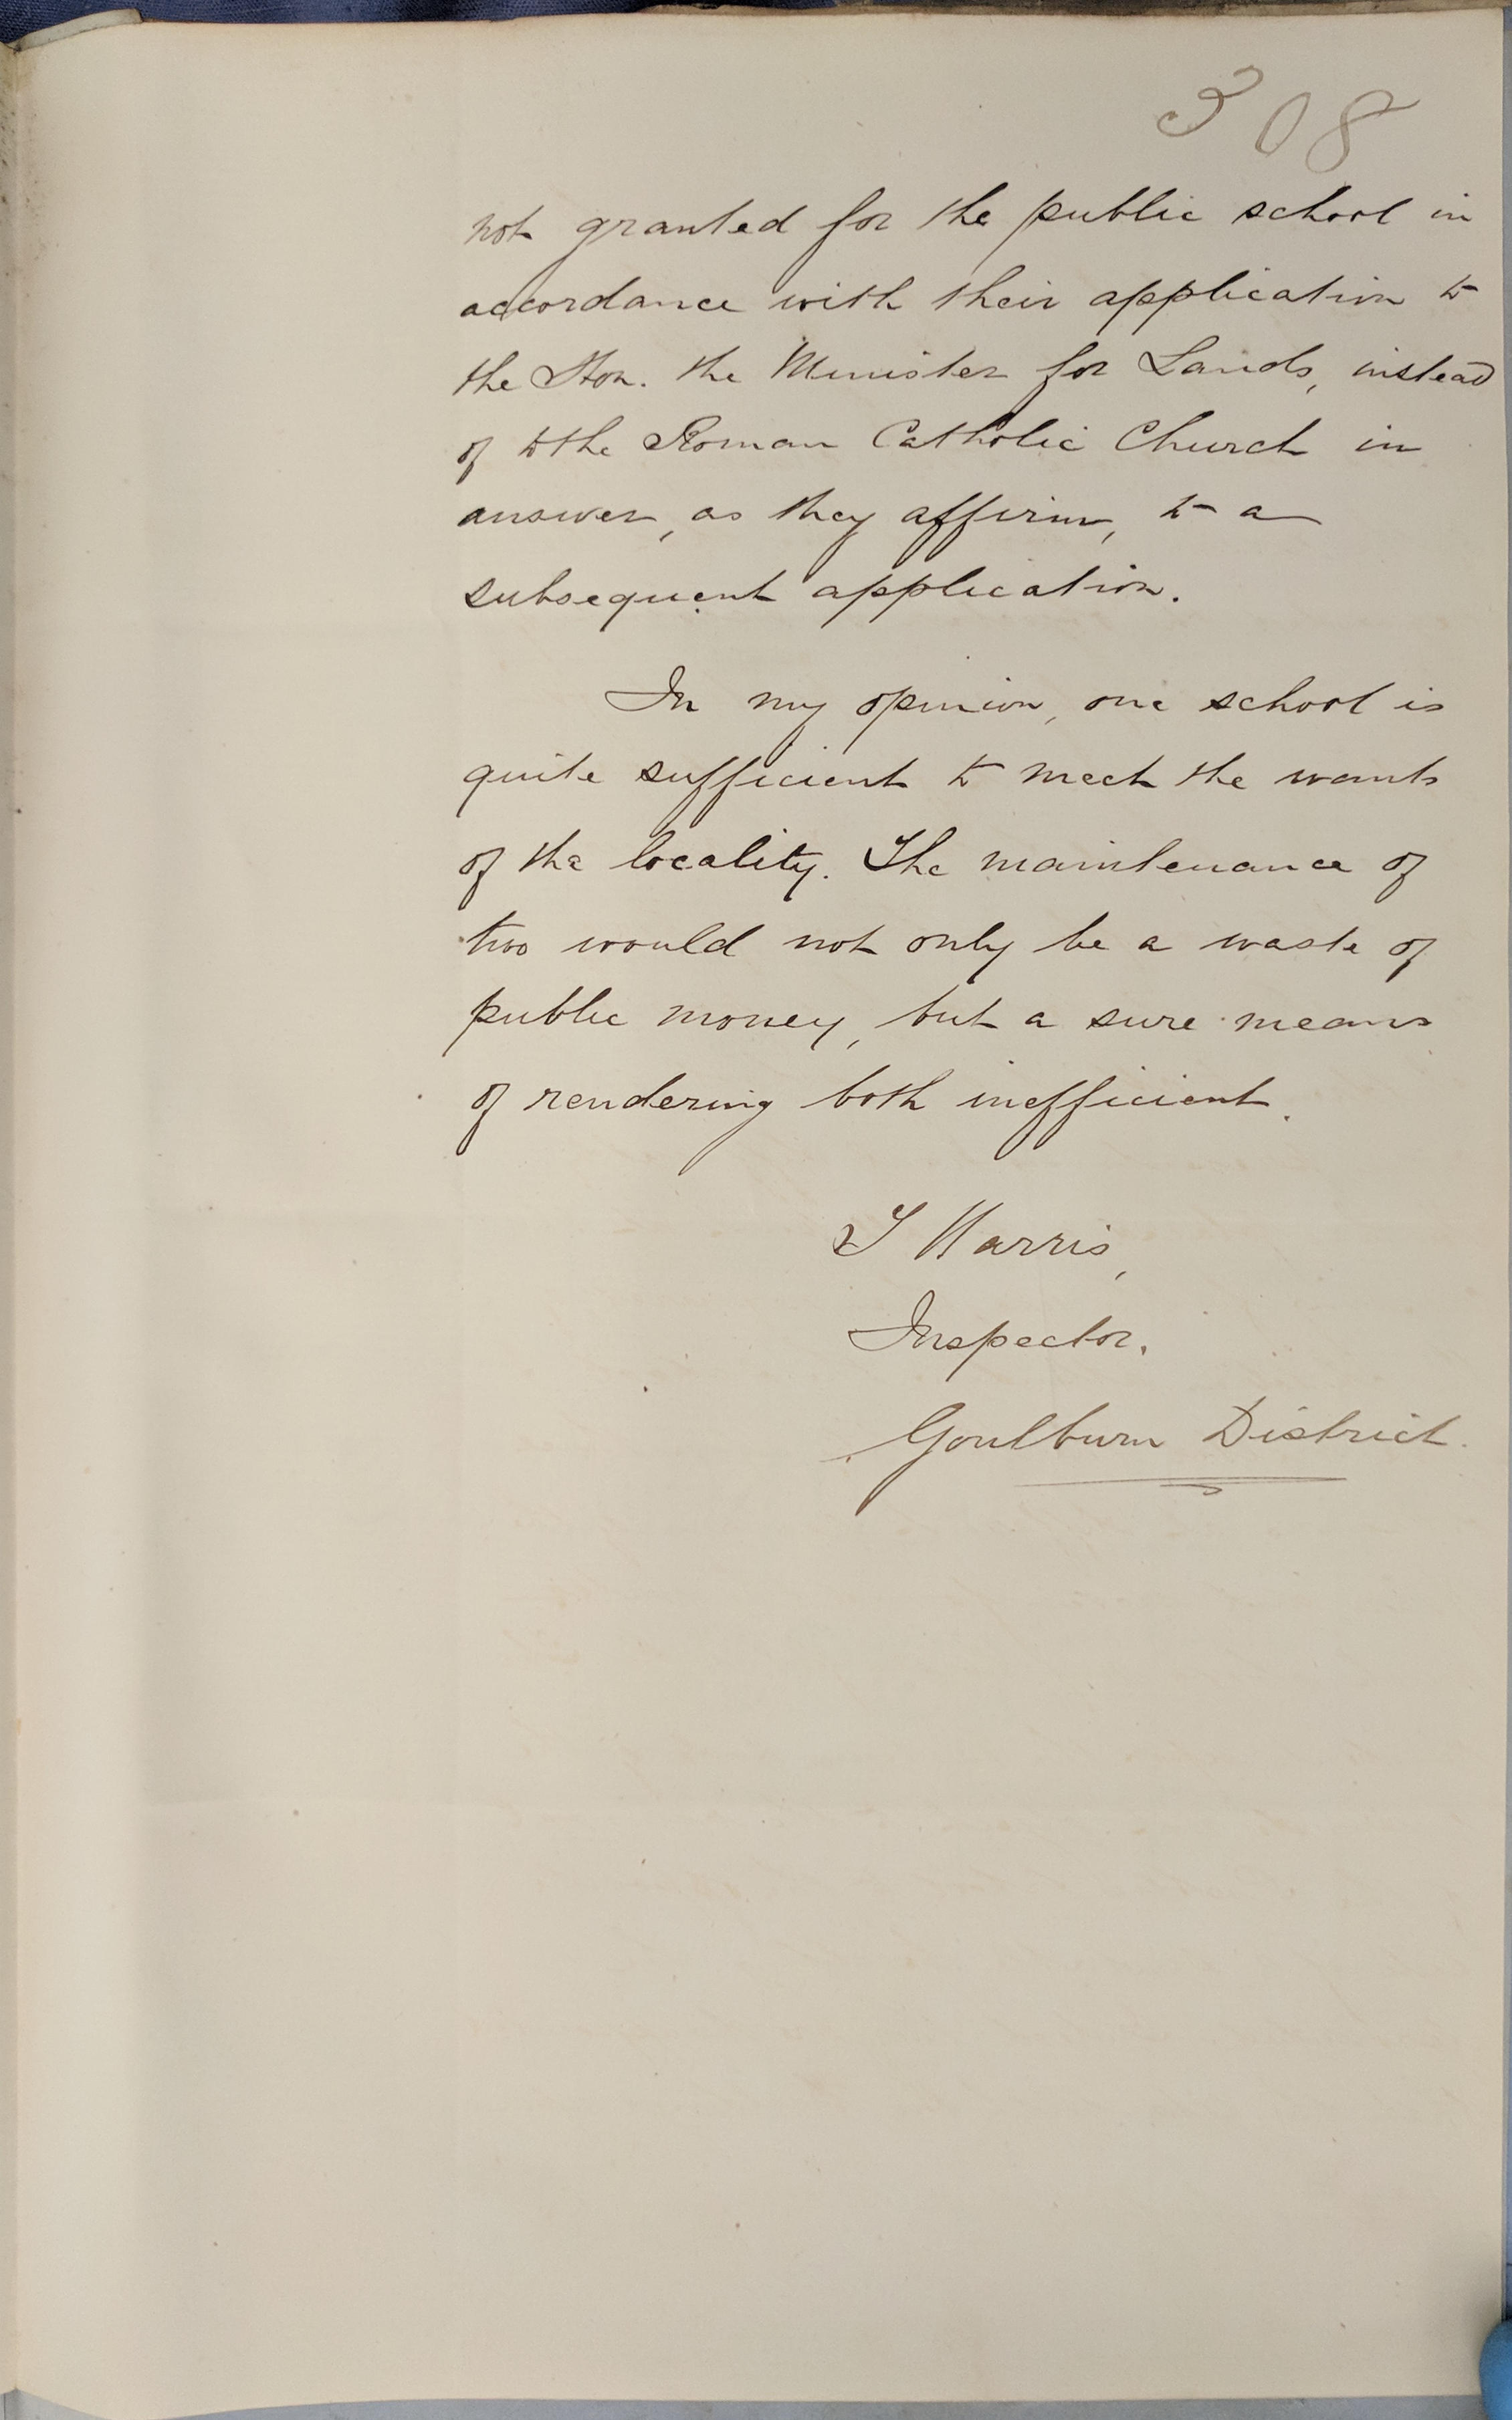 308
not granted for the public school in
accordance with their application to
the Hon. the Minister for Lands, instead
of to the Roman Catholic Church in
answer, as they affirm, to a
subsequent application.
In my opinion, one school is
quite sufficient to meet the wants
of the locality. The maintenance of
two would not only be a waste of
public money, but a sure means
of rendering both inefficient.
J Harris,
Inspector.
Goulburn District.